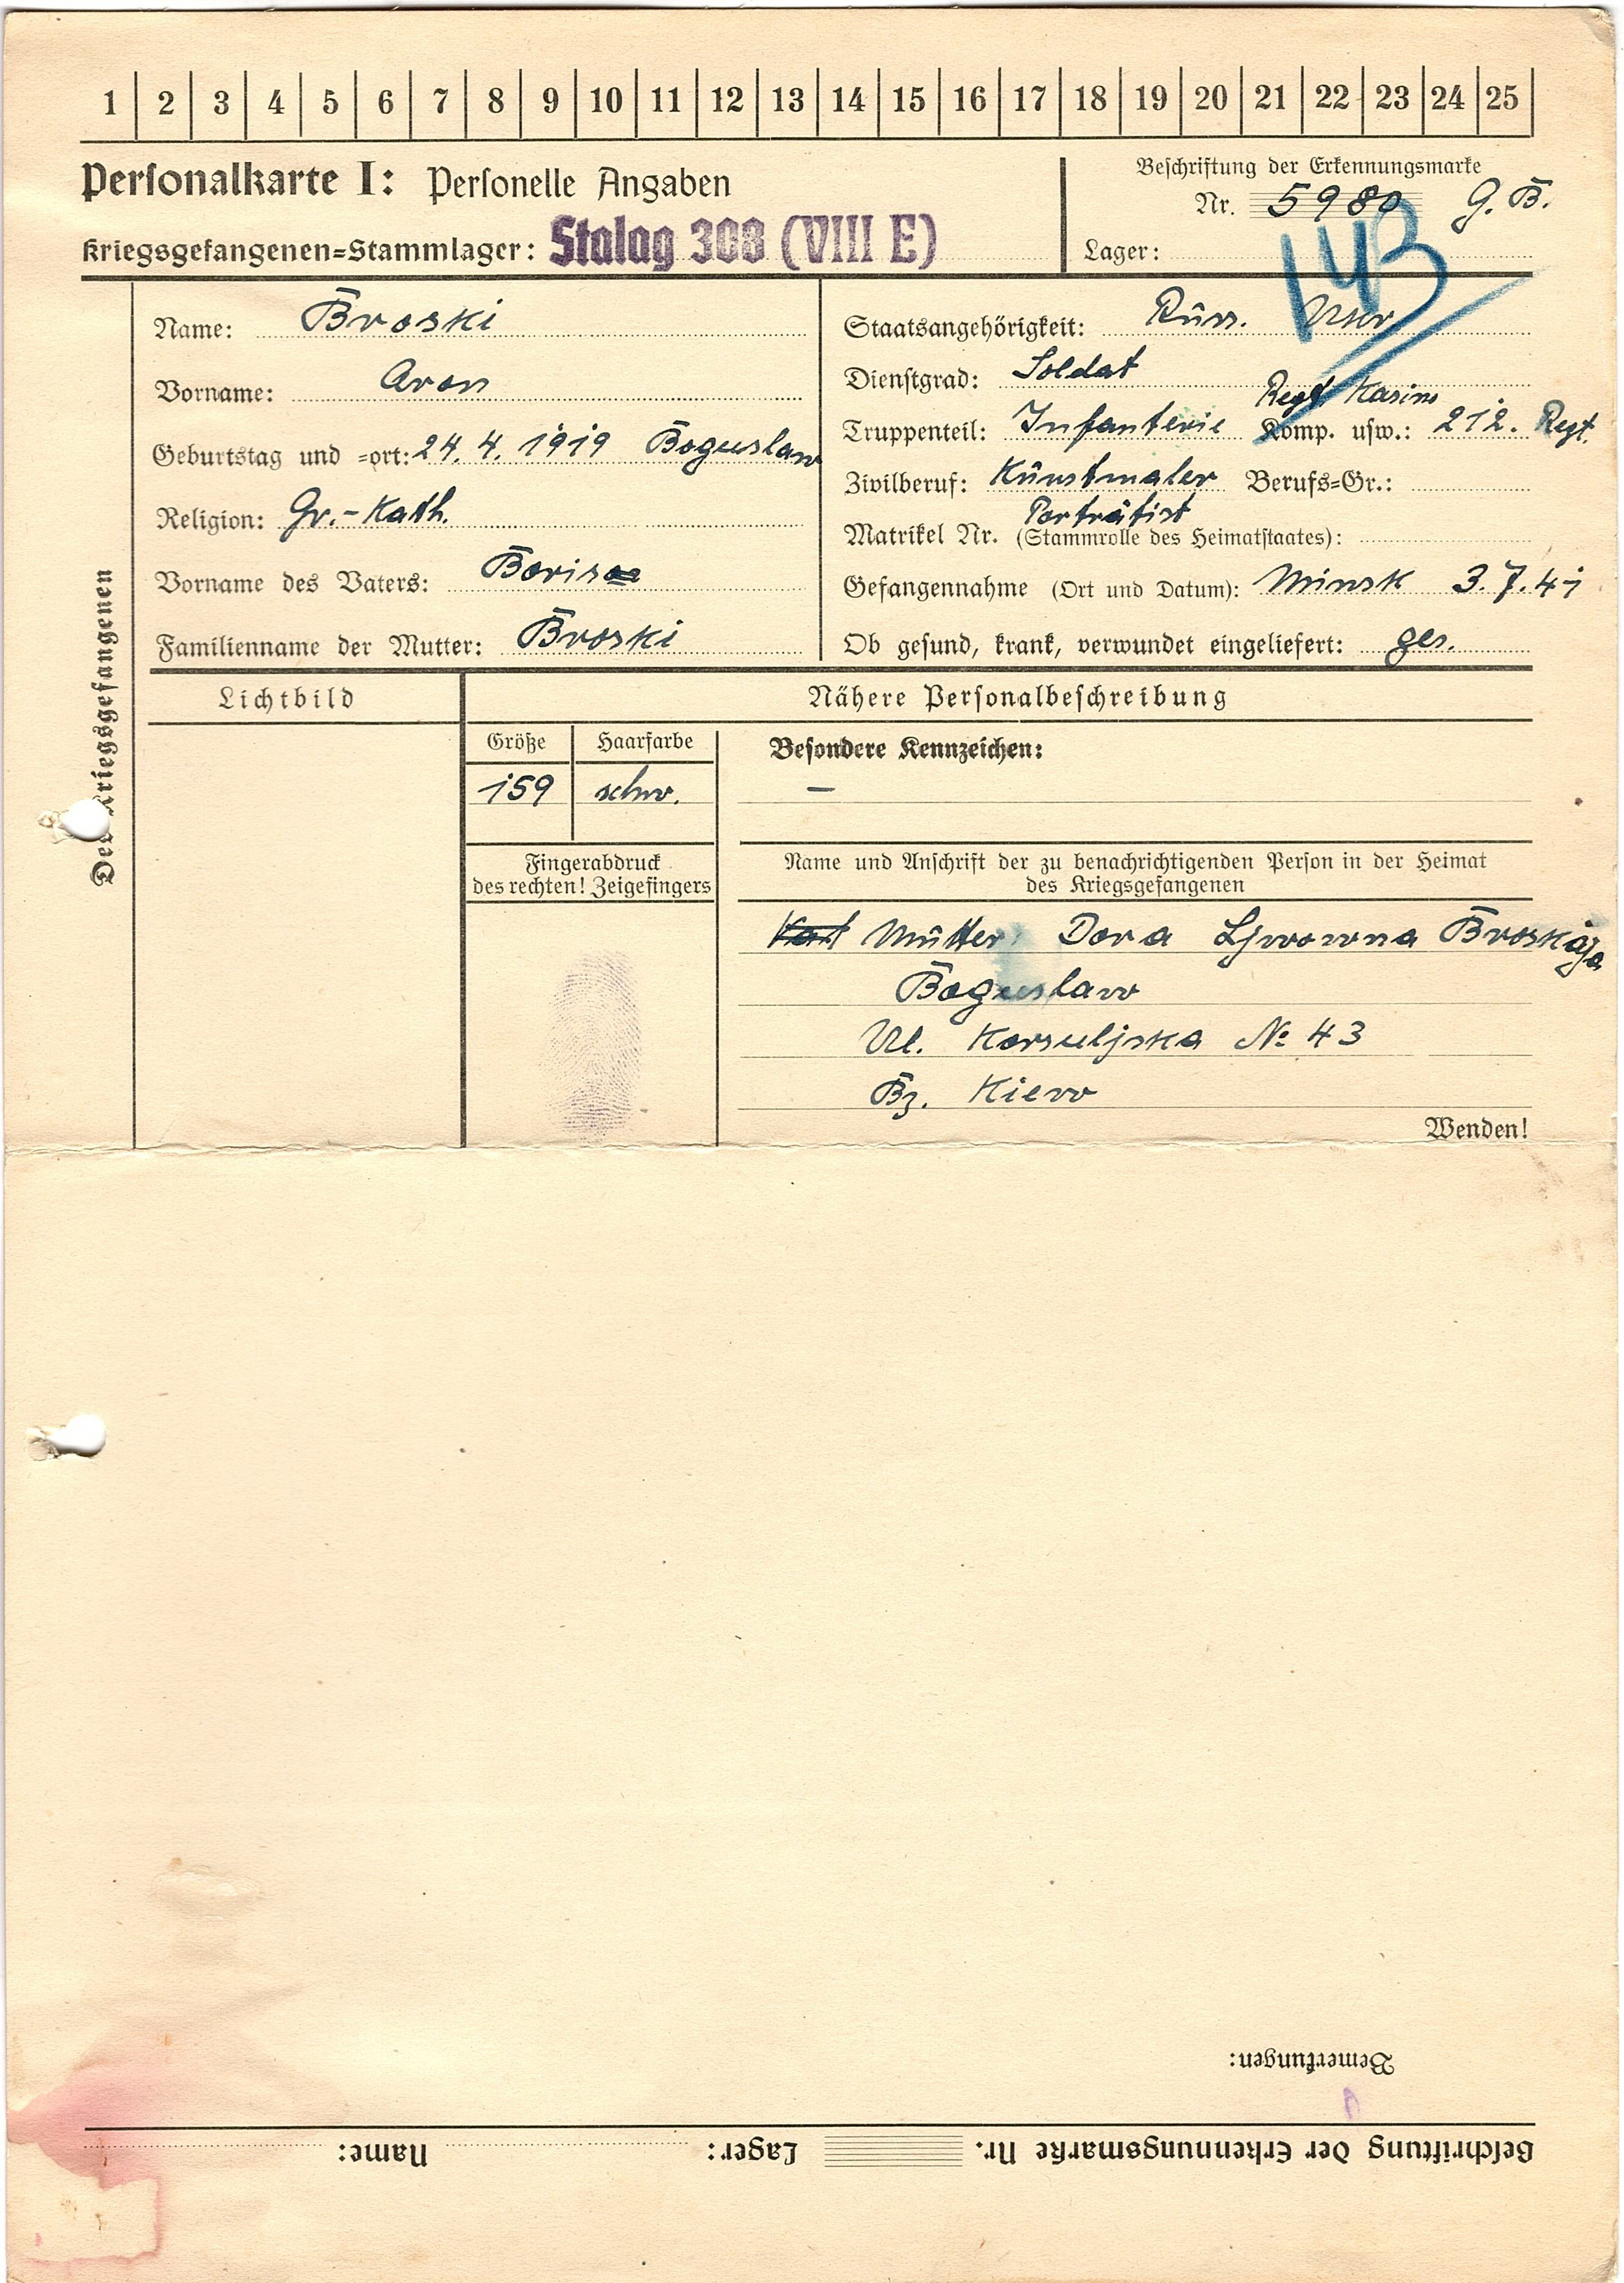 1 2 3 4 5 6 7 8 9 10 11 12 13 14 15 16 17 18 19 20 21 22 23 24 25
Personalkarte I: Personelle Angaben
Kriegsgefangenen=Stammlager: Stalag 308 (VIII E)
Beschriftung der Erkennungsmarke
Nr. 5980 G. B.
Lager:
143
Des Kriegsgefangenen
Name: Broski
Vorname: Aron
Geburtstag und =ort: 24. 4. 1919 Boguslaw
Religion: Gr.-Kath.
Vorname des Vaters: Boris
Familienname der Mutter: Broski
Staatsangehörigkeit: Russ. Ukr.
Dienstgrad: Soldat
Regt. Kasino
Truppenteil: Infanterie Komp. usw.: 212. Regt.
Zivilberuf: Kunstmaler Berufs=Gr.:
Porträtist
Matrikel Nr. (Stammrolle des Heimatstaates):
Gefangennahme (Ort und Datum): Minsk 3.7.41
Ob gesund, krank, verwundet eingeliefert: ges.
Lichtbild
Nähere Personalbeschreibung
Größe Haarfarbe
159 schw.
Besondere Kennzeichen:
–
Fingerabdruck
des rechten! Zeigefingers
Name und Anschrift der zu benachrichtigenden Person in der Heimat
des Kriegsgefangenen
Mutter Dora Ljwowna Broskaja
Boguslaw
Ul. Korsuljska № 43
Bz. Kiew
Wenden!
Bemerkungen:
Beschriftung der Erkennungsmarke Nr. Lager: Name: